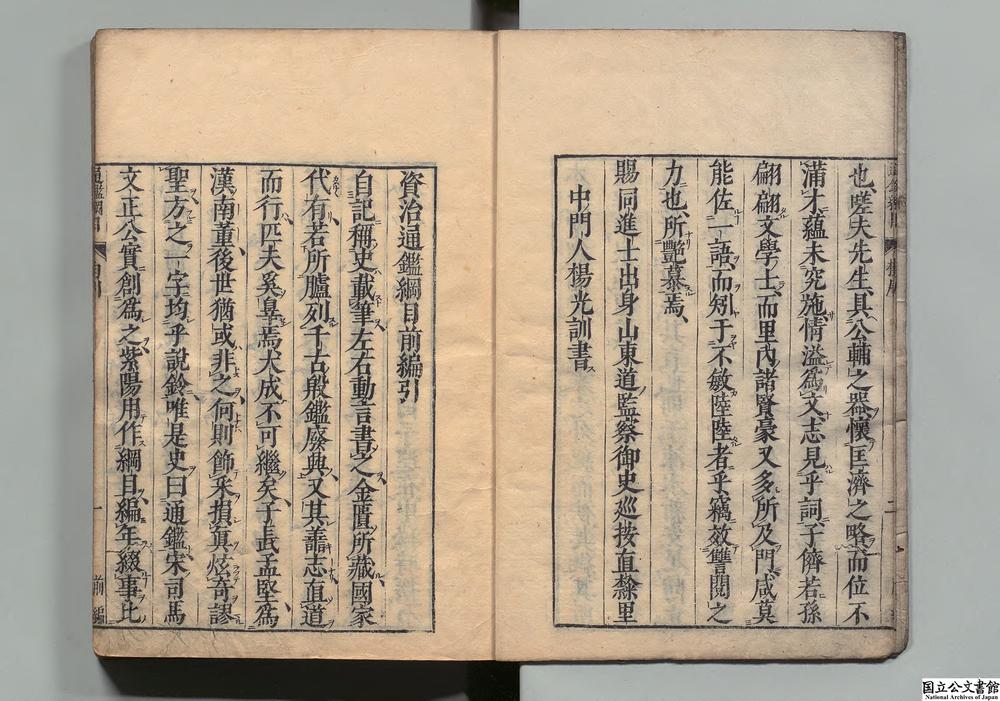 也嗟夫先生具公輔之器懷匡濟之略而位不
滿才蘊未究施情溢爲文志見乎詞子儕若孫
翩翩文學士而里内諸賢豪又多所及門咸莫
能佐一語而矧于不敏陸陸者乎竊效讐閱之
力也所艷慕焉
賜同進士出身山東道監察御史巡按直隸里
中門人楊光訓書
資治通鑑綱目前編引
自記稱史載筆左右動言書之金匱所藏國家
代有若所臚列千古殷鑑廢典又其譱志直道
而行匹夫奚辠焉犬成不可繼矣子武孟堅爲
漢南董後世猶或非之何則飾釆損眞炫奇謬
聖方之一字均乎說鈴唯是史曰通鑑宋司馬
文正公實創爲之紫陽用作綱目編年綴事比
前編
国立公文書館
National Archives of Japan